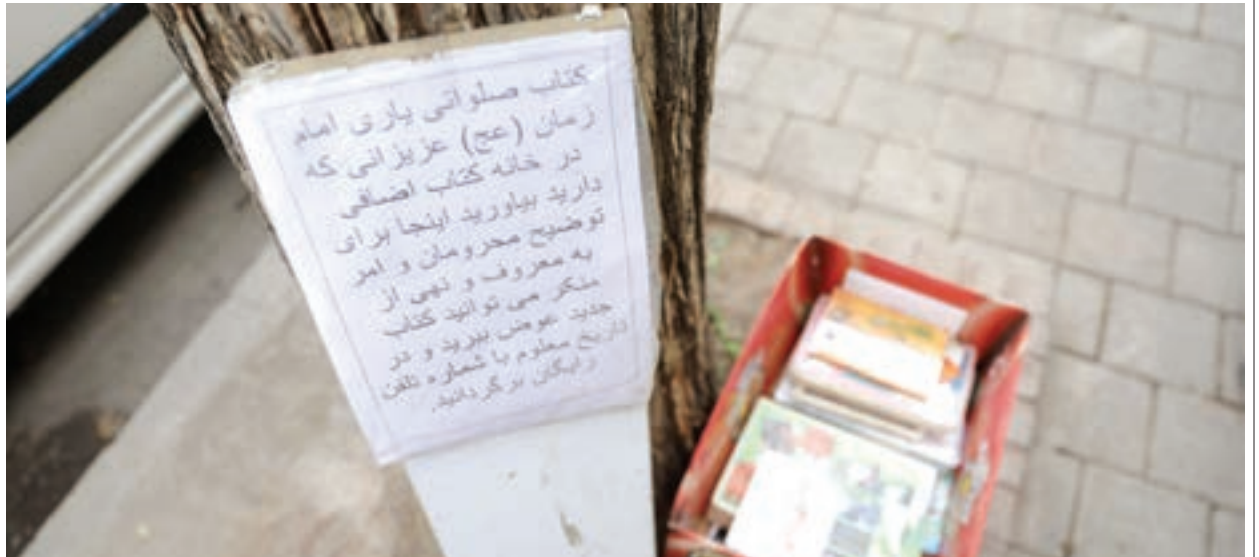 کتاب صلواتی یاری امام
زمان (عج) عزیزانی که
در خانه کتاب اضافی
دارید بیاورید اینجا برای
توضیح محرومان و امر
به معروف و نهی از
منکر می توانید کتاب
جدید عوض ببرید و در
تاریخ معلوم با شماره تلفن
رایگان برگردانید.